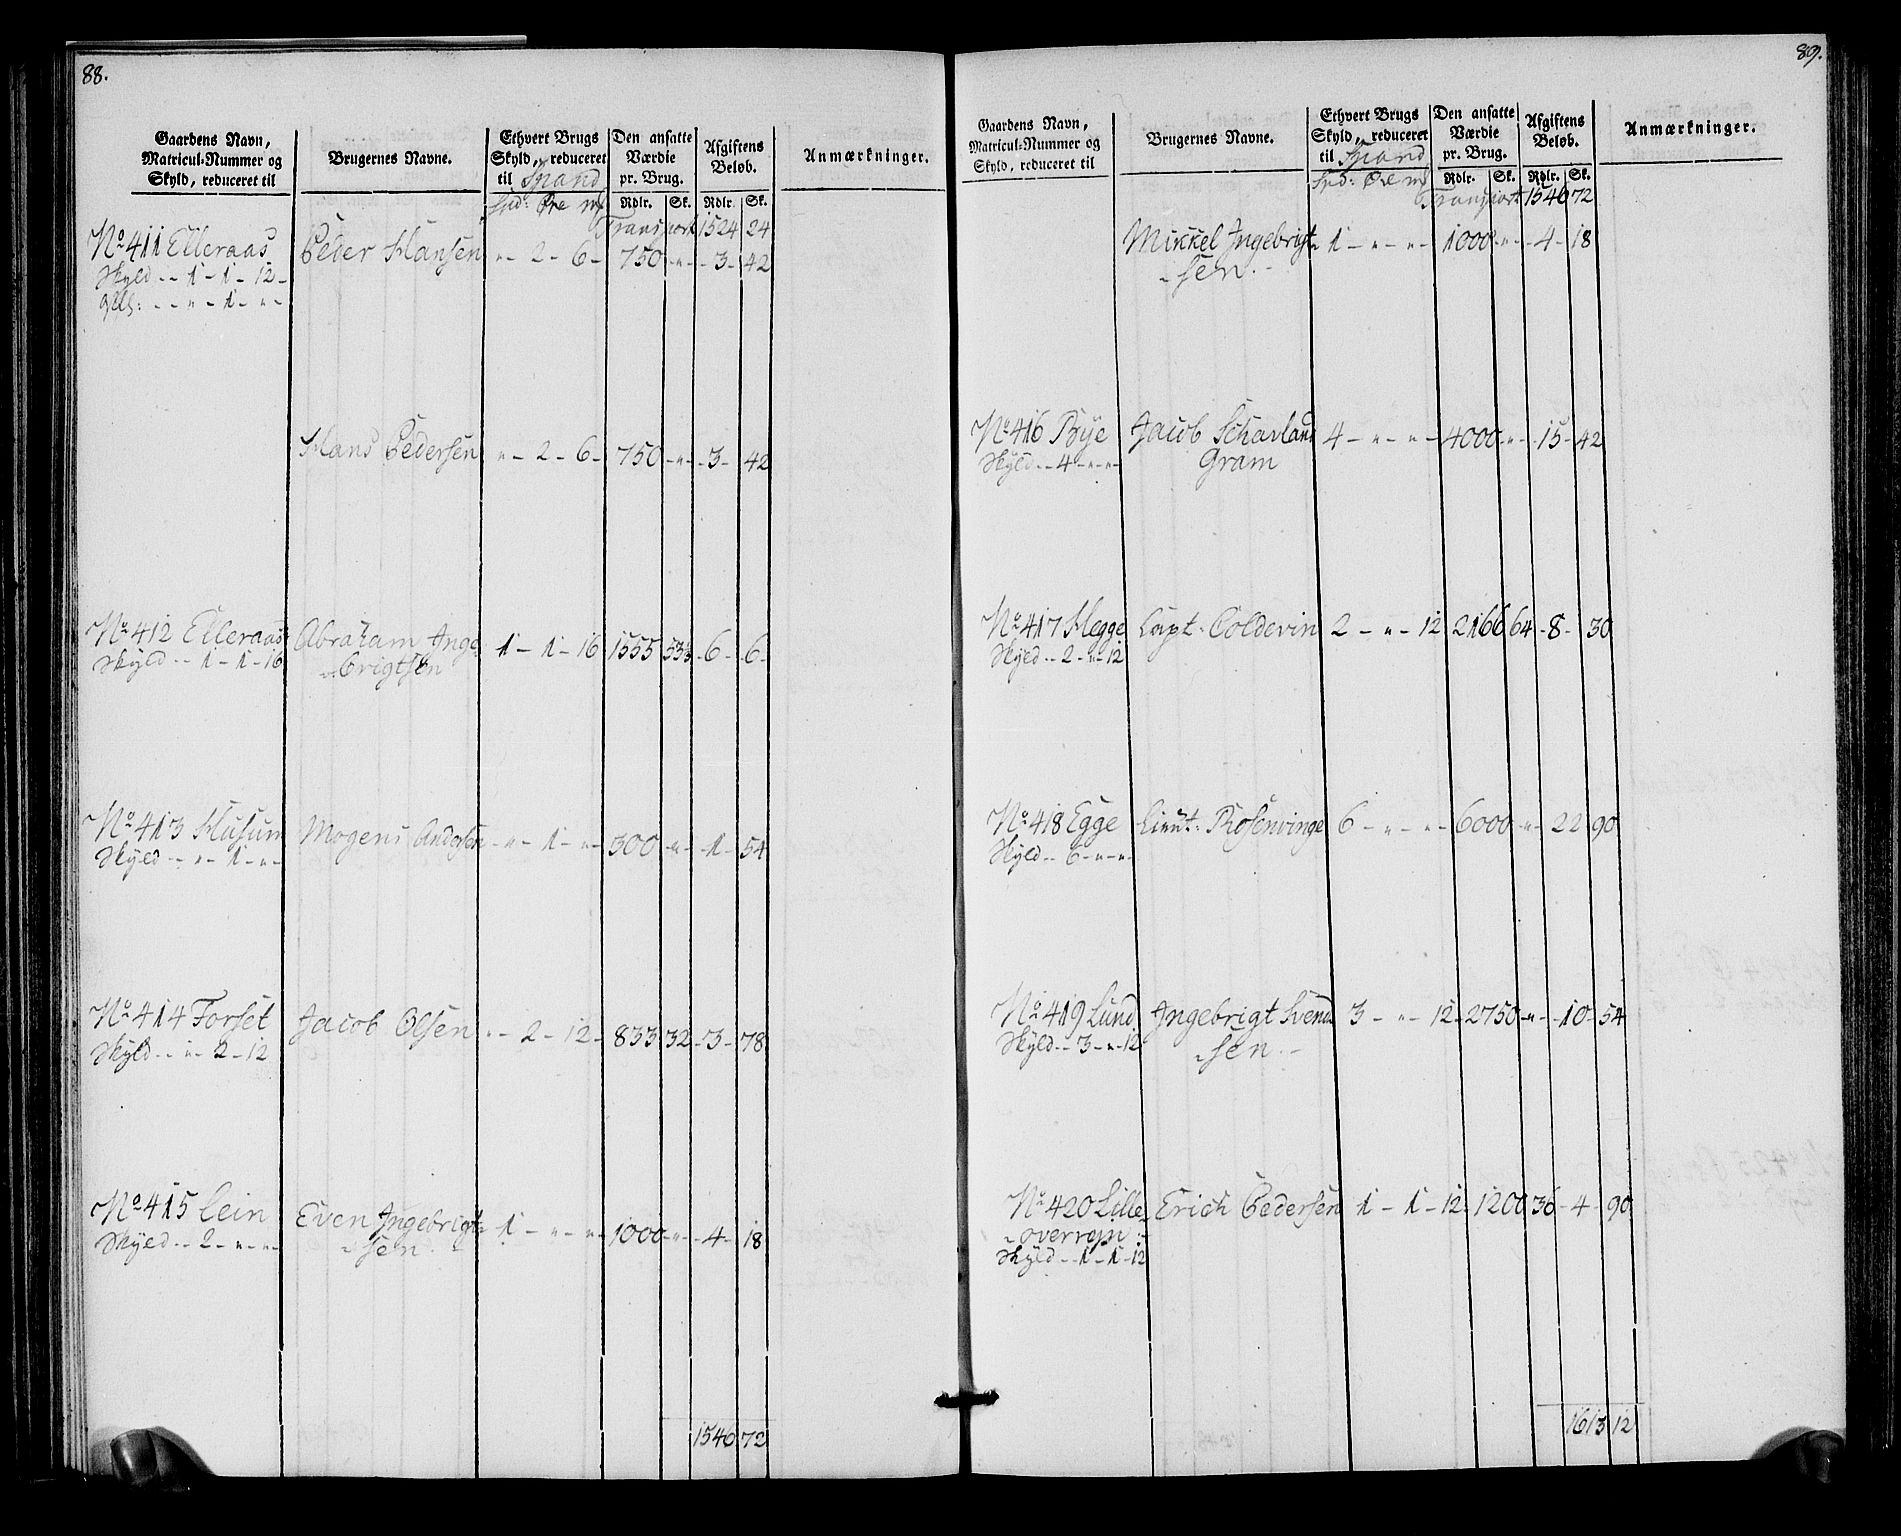 88.
Gaardens Navn, Matricul-Nummer og Skyld, reduceret til
Brugernes Navne.
Ethvert Brugs Skyld, reduceret til Spand
Den ansatte Værdie pr. Brug.
Afgiftens Beløb.
Anmærkninger.
Spd: Øre mk Rdlr. Sk. Rdlr. Sk.
Transport 1524 24
No 411 Elleraas Peder Hansen " - 2 - 6 - 750 - " - 3 - 42
Skyld - - 1 - 1 - 12 -
- - " - 1 - " -
Hans Pedersen " - 2 - 6 - 750 - " - 3 - 42
No 412 Elleraas Abraham Inge 1 - 1 - 16 1555 53⅓ - 6 - 6 -
Skyld - - 1 - 1 - 16 brigtsen
No 413 Husum Mogens Andersen - " - 1 - " - 300 - " - 1 - 54
Skyld - - " - 1 - " -
No 414 Forset Jacob Olsen " - 2 - 12 - 833 32 - 3 - 78
Skyld - - " - 2 - 12
No 415 Lein Even Ingebrigt 1 - " - " - 1000 - " - 4 - 18
Skyld - - 2 - " - " - sen
1546 72
89.
Gaardens Navn, Matricul-Nummer og Skyld, reduceret til
Brugernes Navne.
Ethvert Brugs Skyld, reduceret til Spand
Den ansatte Værdie pr. Brug.
Afgiftens Beløb.
Anmærkninger.
Spd: Øre mk Rdlr. Sk. Rdlr. Sk.
Transport 1546 72
Mikkel Ingebrigt 1 - " - " - 1000 - " - 4 - 18
sen. -
No 416 Bye Jacob Schavland 4 - " - " - 4000 - " - 15 - 42
Skyld - - 4 - " - " - Gram
No 417 Hegge Capt. Coldevin 2 - " - 12 2166 64 - 8 - 30
Skyld - - 2 - " - 12
No 418 Egge Lieut: Rosenvinge 6 - " - " - 6000 - " - 22 - 90
Skyld - - 6 - " - " -
No 419 Lund Ingebrigt Svend 3 - " - 12 - 2750 - " - 10 - 54
Skyld - - 3 - " - 12 sen. -
No 420 Lille Erich Pedersen 1 - 1 - 12 1200 36 - 4 - 90
overrein
Skyld - - 1 - 1 - 12
1613 12